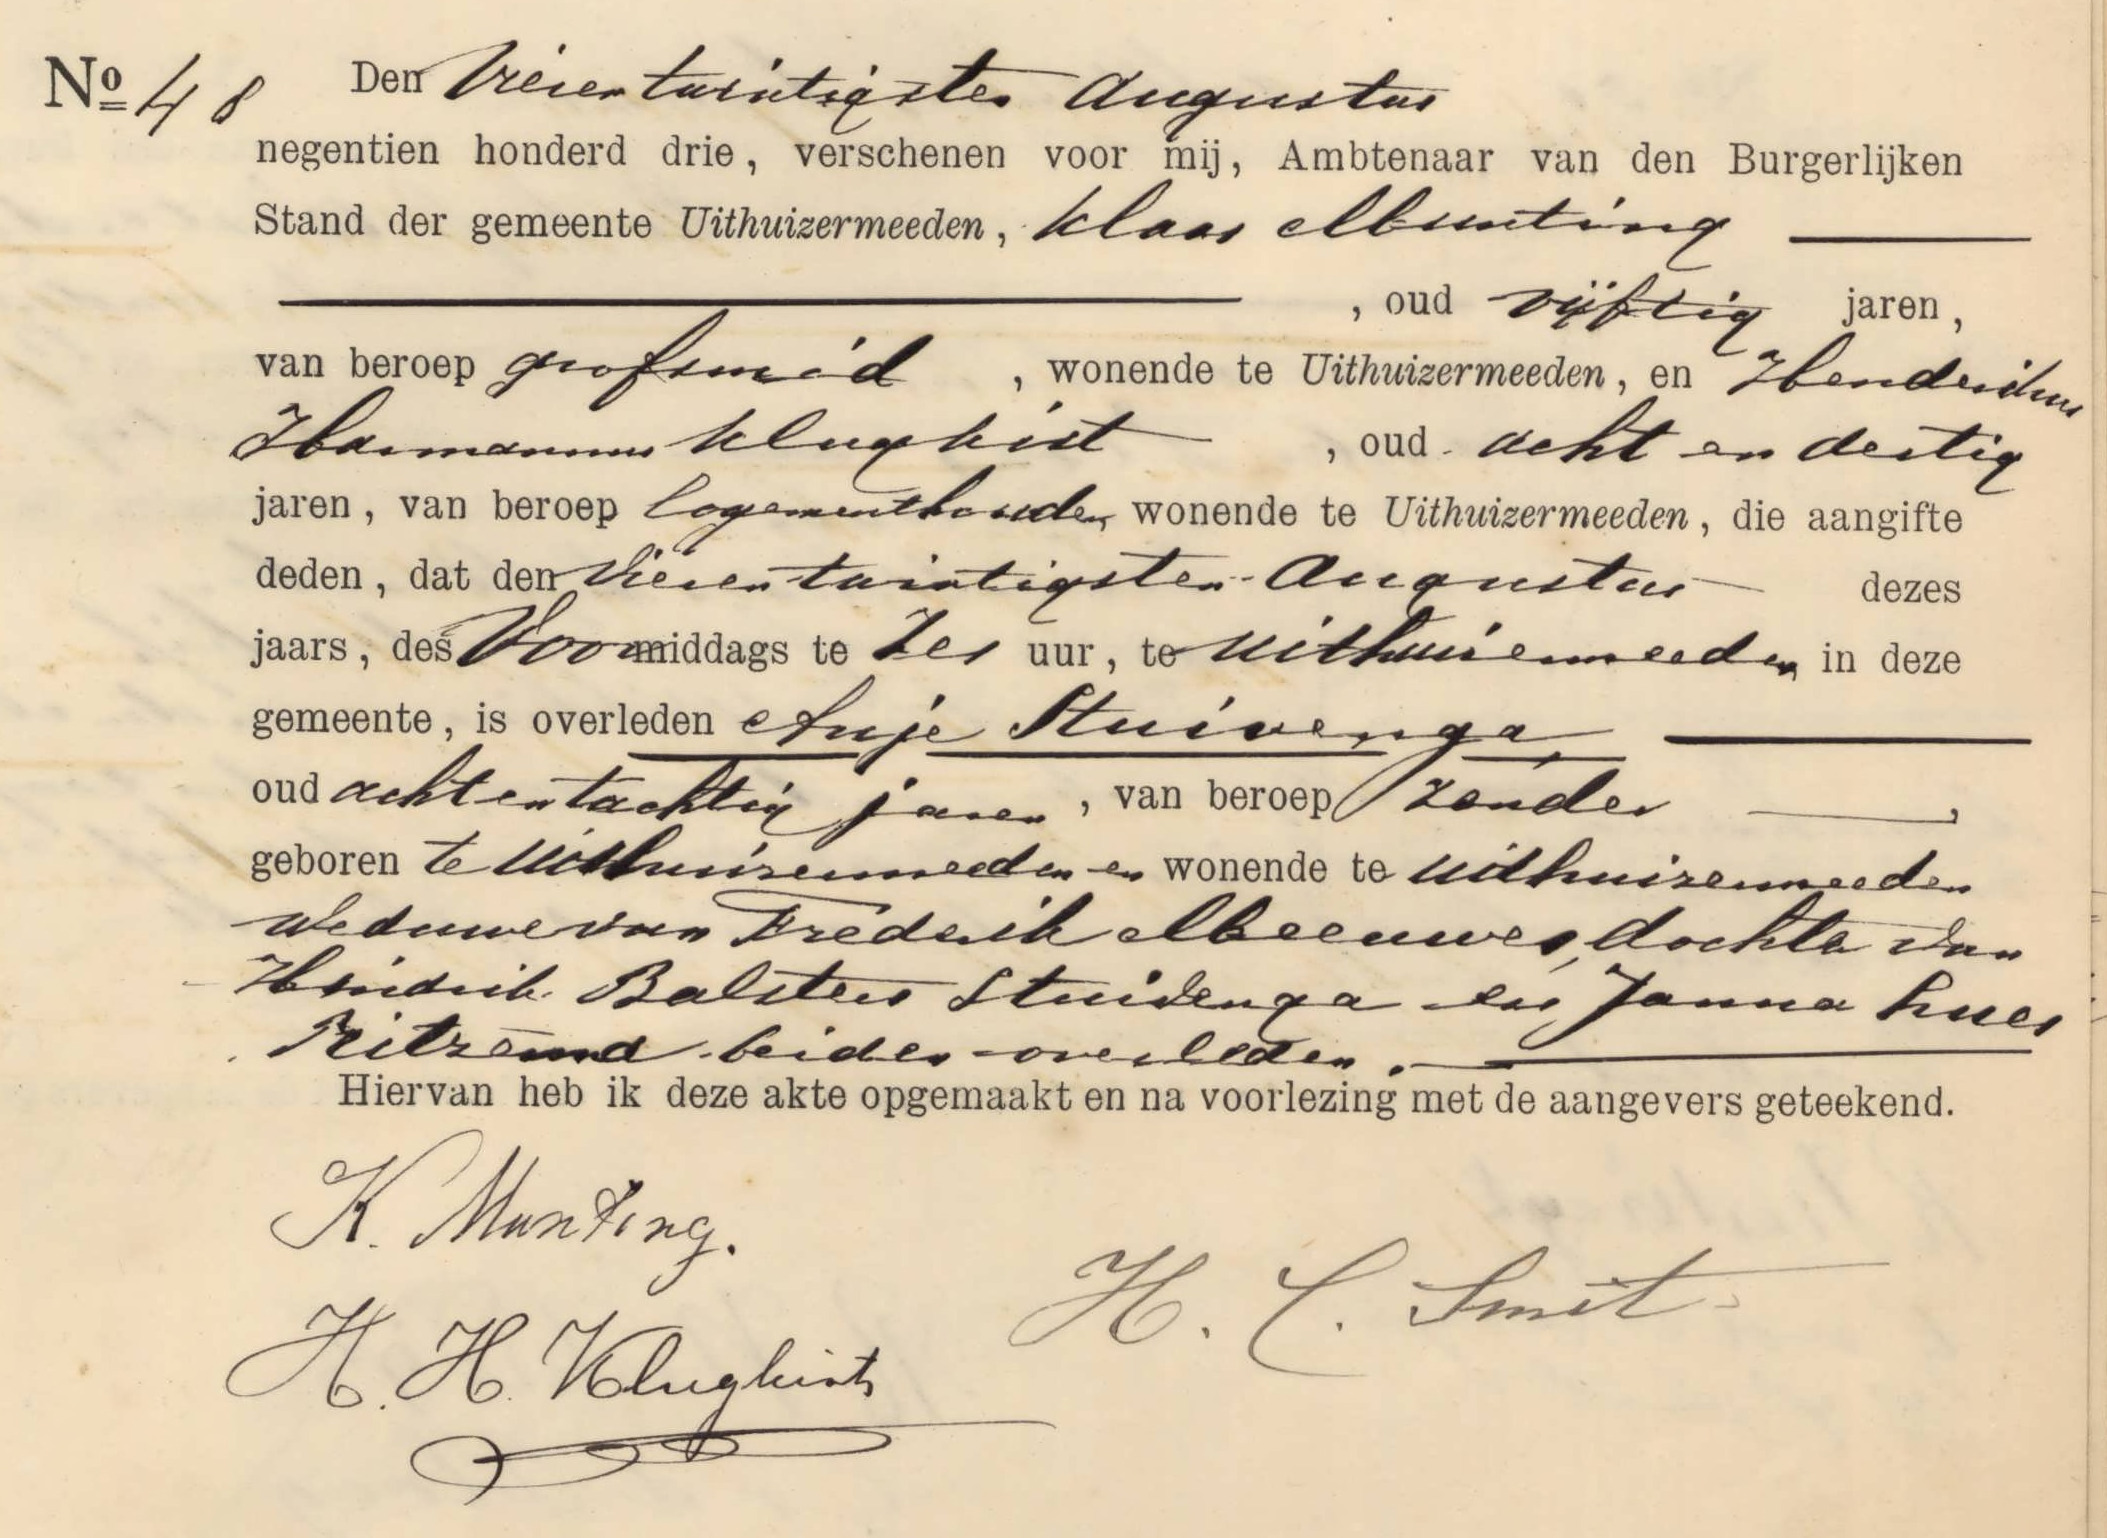 No 48 Den Vierentwintigsten Augustus
negentien honderd drie, verschenen voor mij, Ambtenaar van den Burgerlijken
Stand der gemeente Uithuizermeeden, Klaas Munting
, oud vijftig jaren,
van beroep grofsmid , wonende te Uithuizermeeden, en Hendrikus
Harmannus Klughist , oud acht en dertig
jaren, van beroep logementhouder, wonende te Uithuizermeeden, die aangifte
deden, dat den Vierentwintigsten Augustus dezes
jaars, des Voormiddags te Zes uur, te Uithuizermeeden in deze
gemeente, is overleden Anje Stuivenga
oud achtentachtig jaren, van beroep zonder ,
geboren te Uithuizermeeden en wonende te Uithuizermeeden
Weduwe van Frederik Meeuwes, dochter van
Hindrik Balsters Stuivenga en Janna Lues
Ritzema beiden overleden.
Hiervan heb ik deze akte opgemaakt en na voorlezing met de aangevers geteekend.
K. Munting.
H. C. Smit
H. H. Klughist